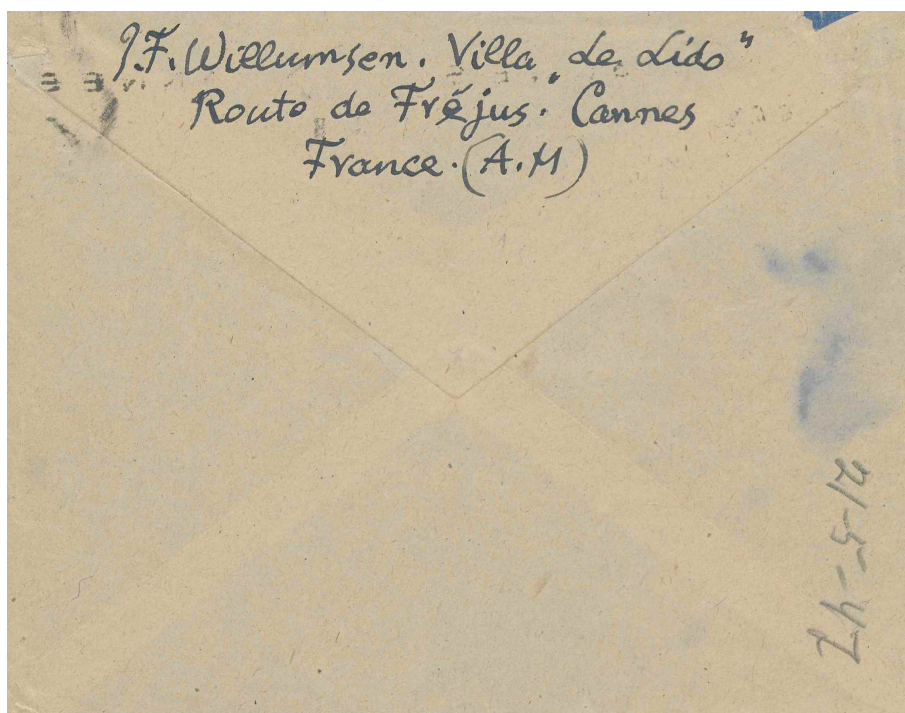 J.F. Willumsen. Villa "Le Lido"
Route de Fréjus. Cannes
France. (A.M)
21-5-47